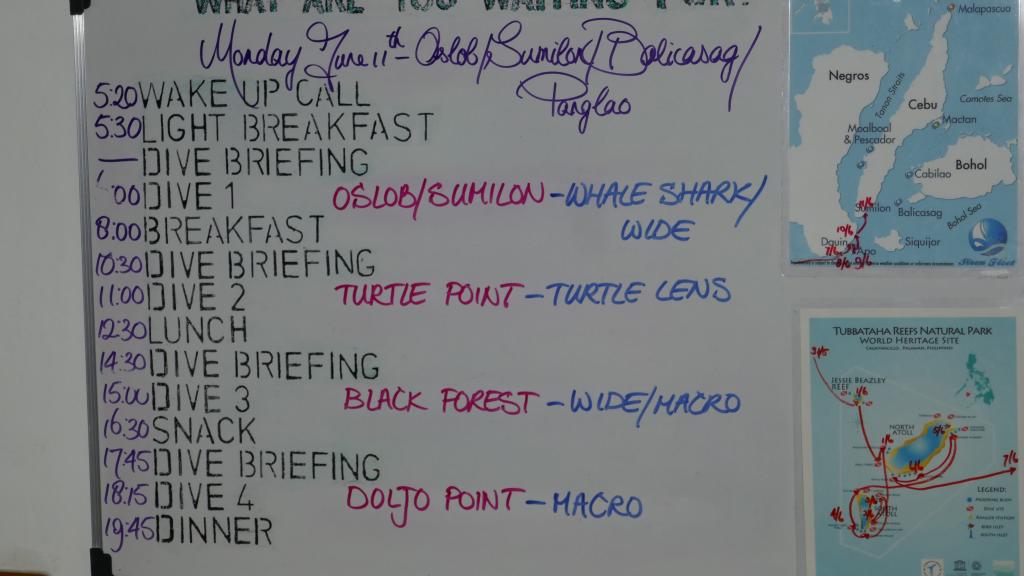 WHAT ARE YOU WAITING FOR?
Monday June 11th - Oslob/Sumilon/Balicasag/
Panglao
5:20 WAKE UP CALL
5:30 LIGHT BREAKFAST
— DIVE BRIEFING
:00 DIVE 1 OSLOB/SUMILON - WHALE SHARK/
WIDE
8:00 BREAKFAST
10:30 DIVE BRIEFING
11:00 DIVE 2 TURTLE POINT - TURTLE LENS
12:30 LUNCH
14:30 DIVE BRIEFING
15:00 DIVE 3 BLACK FOREST - WIDE/MACRO
16:30 SNACK
17:45 DIVE BRIEFING
18:15 DIVE 4 DOLJO POINT - MACRO
19:45 DINNER
Malapascua
Negros
Tanon Straits
Cebu
Camotes Sea
Mactan
Moalboal
& Pescador
Bohol
Cabilao
Sumilon
Balicasag
Bohol Sea
10/6
Dauin
7/6
Apo
Siquijor
8/6 9/6
Siren Fleet
TUBBATAHA REEFS NATURAL PARK
WORLD HERITAGE SITE
CAGAYANCILLO, PALAWAN, PHILIPPINES
31/5
JESSIE BEAZLEY
REEF
1/6
NORTH
ATOLL
5/6
1/6
4/6
7/6
LEGEND:
MOORING BUOY
DIVE SITE
RANGER STATION
BIRD ISLET
SOUTH ISLET